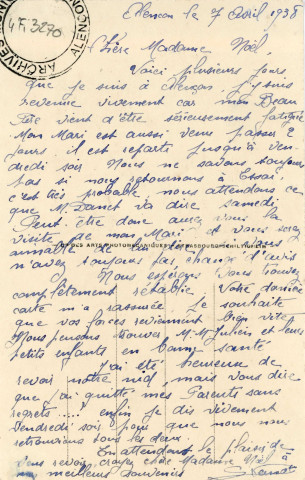 Alençon le 7 Avril 1938
ARCHIVES
4 Fi 3270
ALENÇON
Chère Madame Noël,
Voici plusieurs jours
que je suis à Alençon, j'y suis
revenue vivement car mon Beau
Père vient d'être sérieusement fatigué
Mon Mari est aussi venu passer 2
jours, il est reparti jusqu'à ven-
dredi soir. Nous ne savons toujours
pas si nous retournons à Essai
c'est très probable nous attendons ce
que M. Danet va dire samedi
Peut-être donc aurez vous la
visite de mon Mari et vous serez
aimable de
n'avez toujours pas changé d'avis
Nous espérons vous trouver
complètement rétablie, votre dernière
carte m'a rassurée. Je souhaite
que vos forces reviennent bien vite
Nous pensons trouver M. M. Julien et leurs
petits enfants en bonne santé
J'ai été heureuse de
revoir notre nid, mais vous dire
que j'ai quitté mes Parents sans
regrets ..... enfin je dis vivement
Vendredi soir pour que nous nous
retrouvions tous les deux.
En attendant le plaisir de
vous revoir croyez chère Madame Noël à
nos meilleurs souvenirs